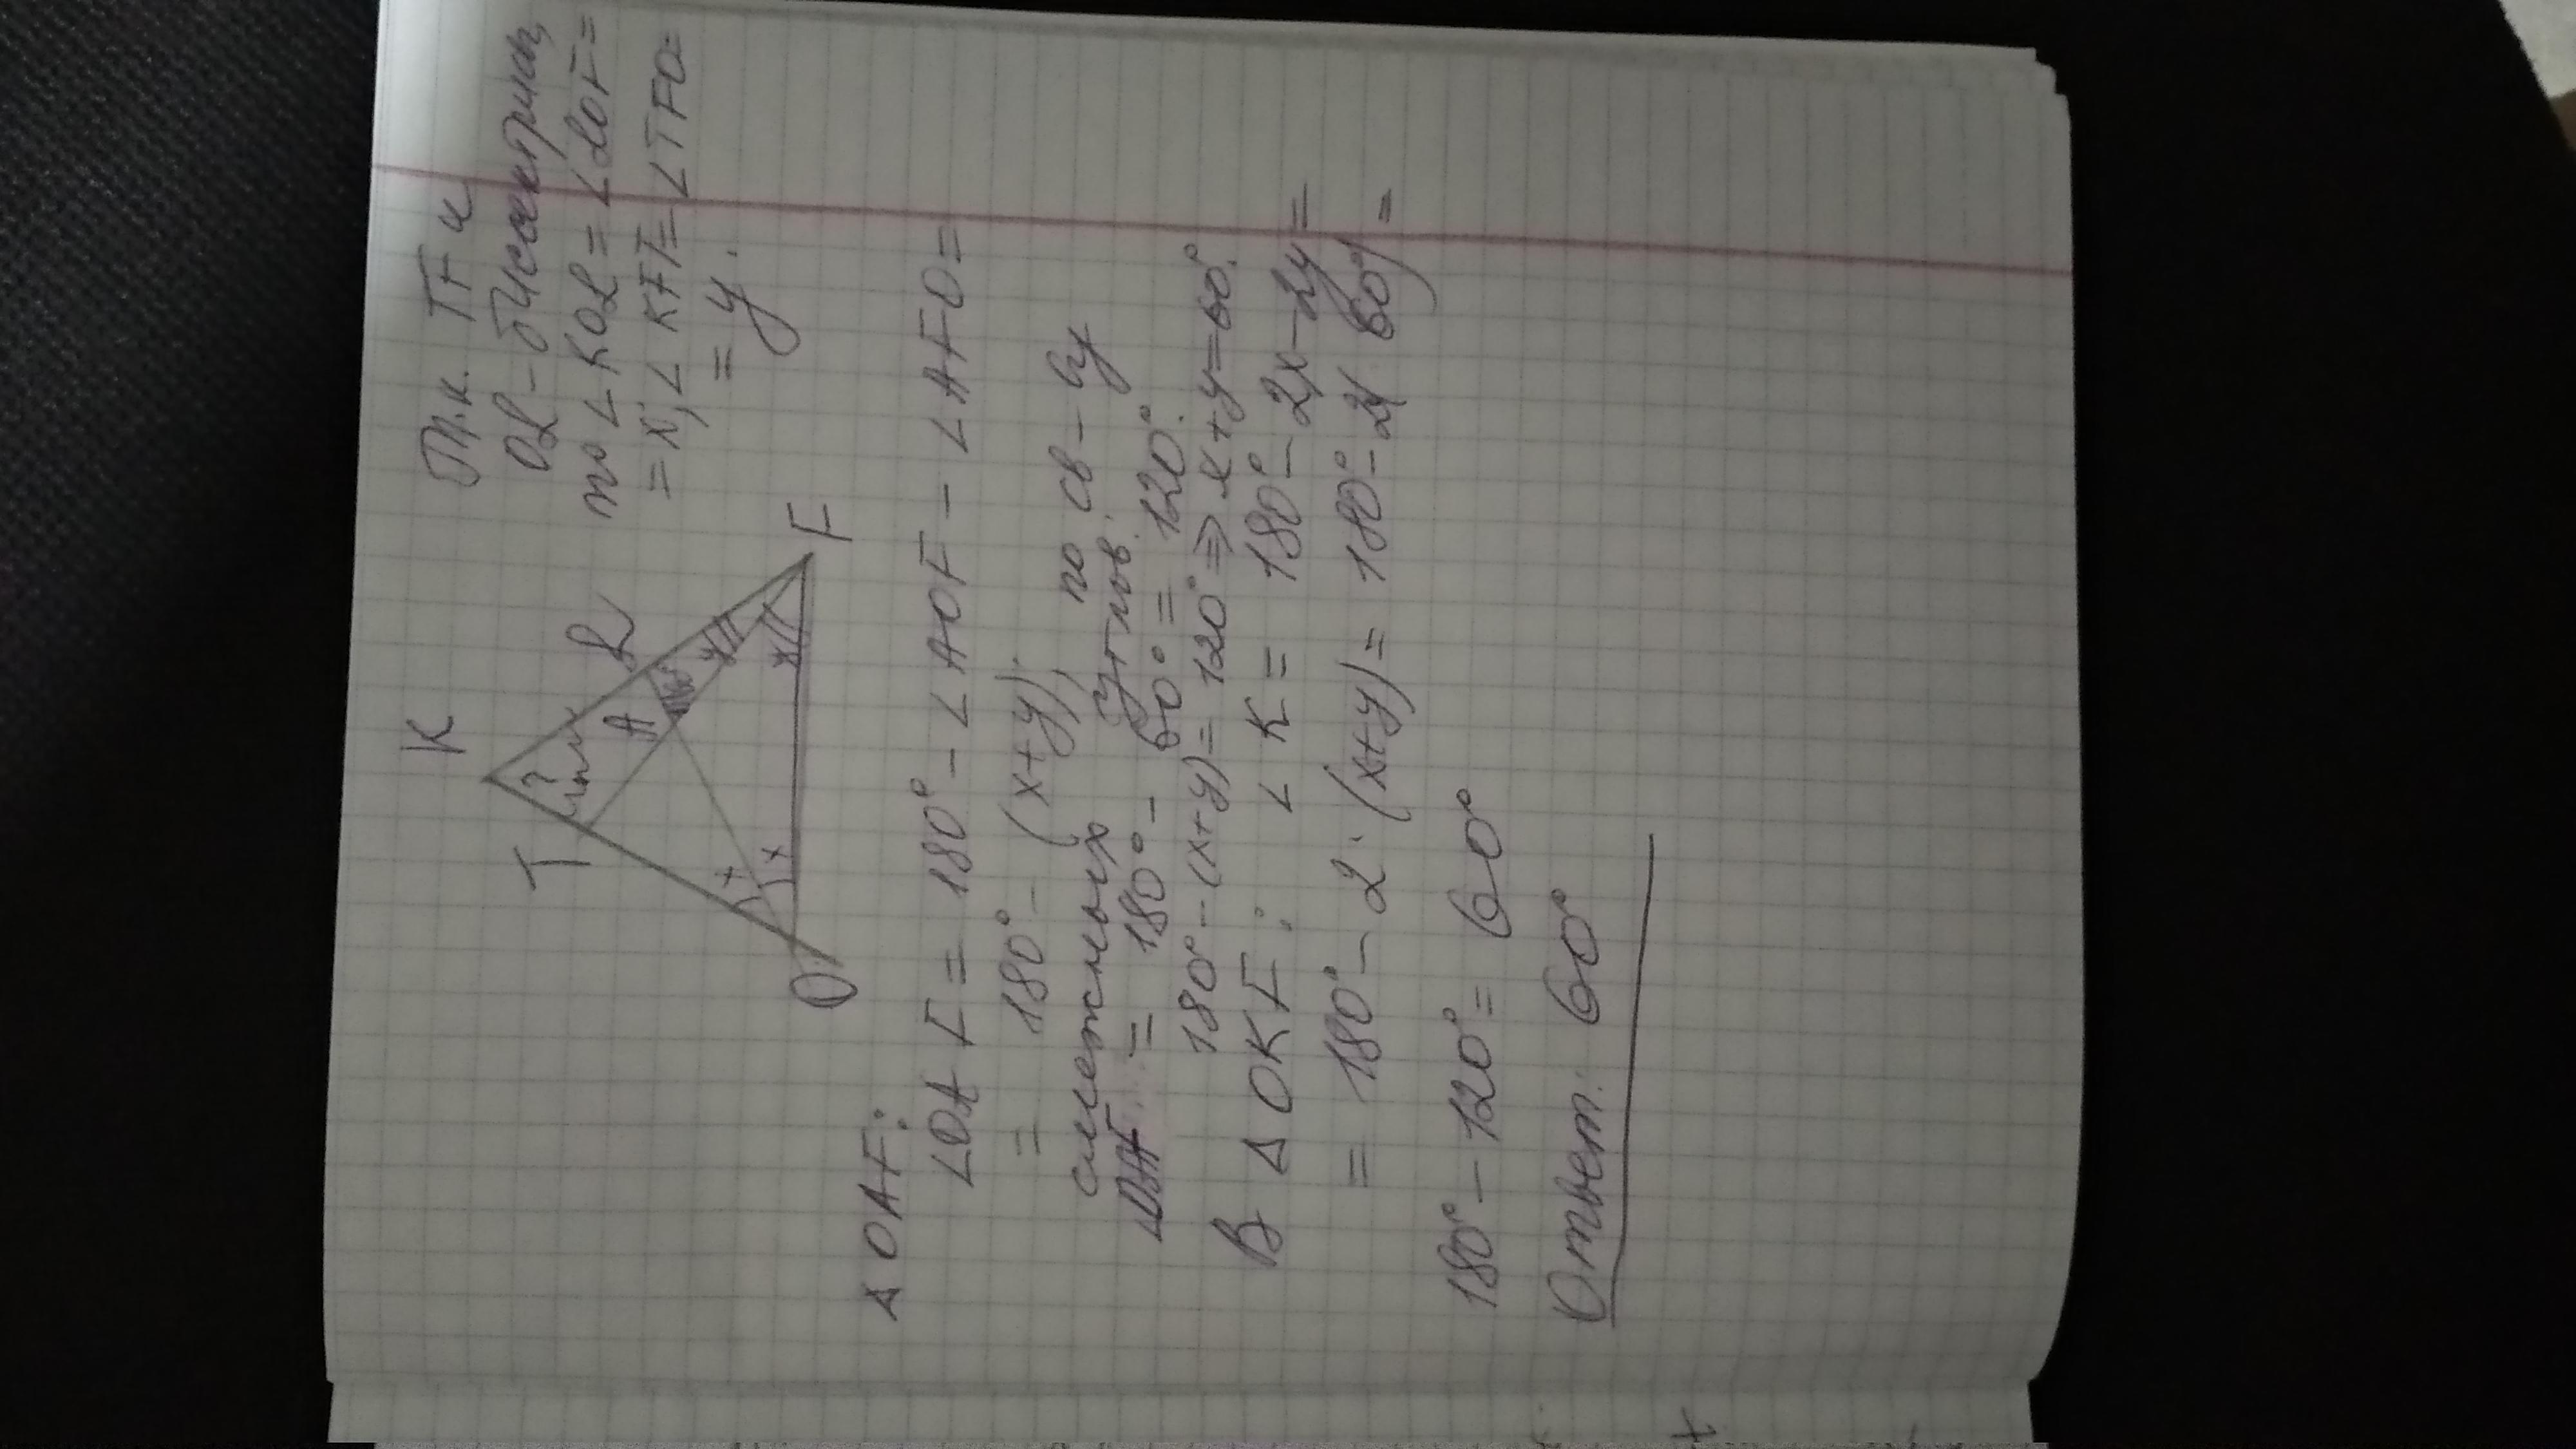 K
T
L
A
?
60°
x
x
y
y
O
F
Т.к. TF и
OL – биссектрисы,
то ∠KOL = ∠LOF =
= x; ∠KFT = ∠TFO =
= y.
Δ OAF:
∠OAF = 180° – ∠AOF – ∠AFO =
= 180° – (x+y), по св-ву
смежных углов.
∠OAF = 180° – 60° = 120°.
180° – (x+y) = 120° ⇒ x+y = 60°.
В Δ OKF: ∠K = 180° – 2x – 2y =
= 180° – 2·(x+y) = 180° – 2·60° =
180° – 120° = 60°
Ответ: 60°